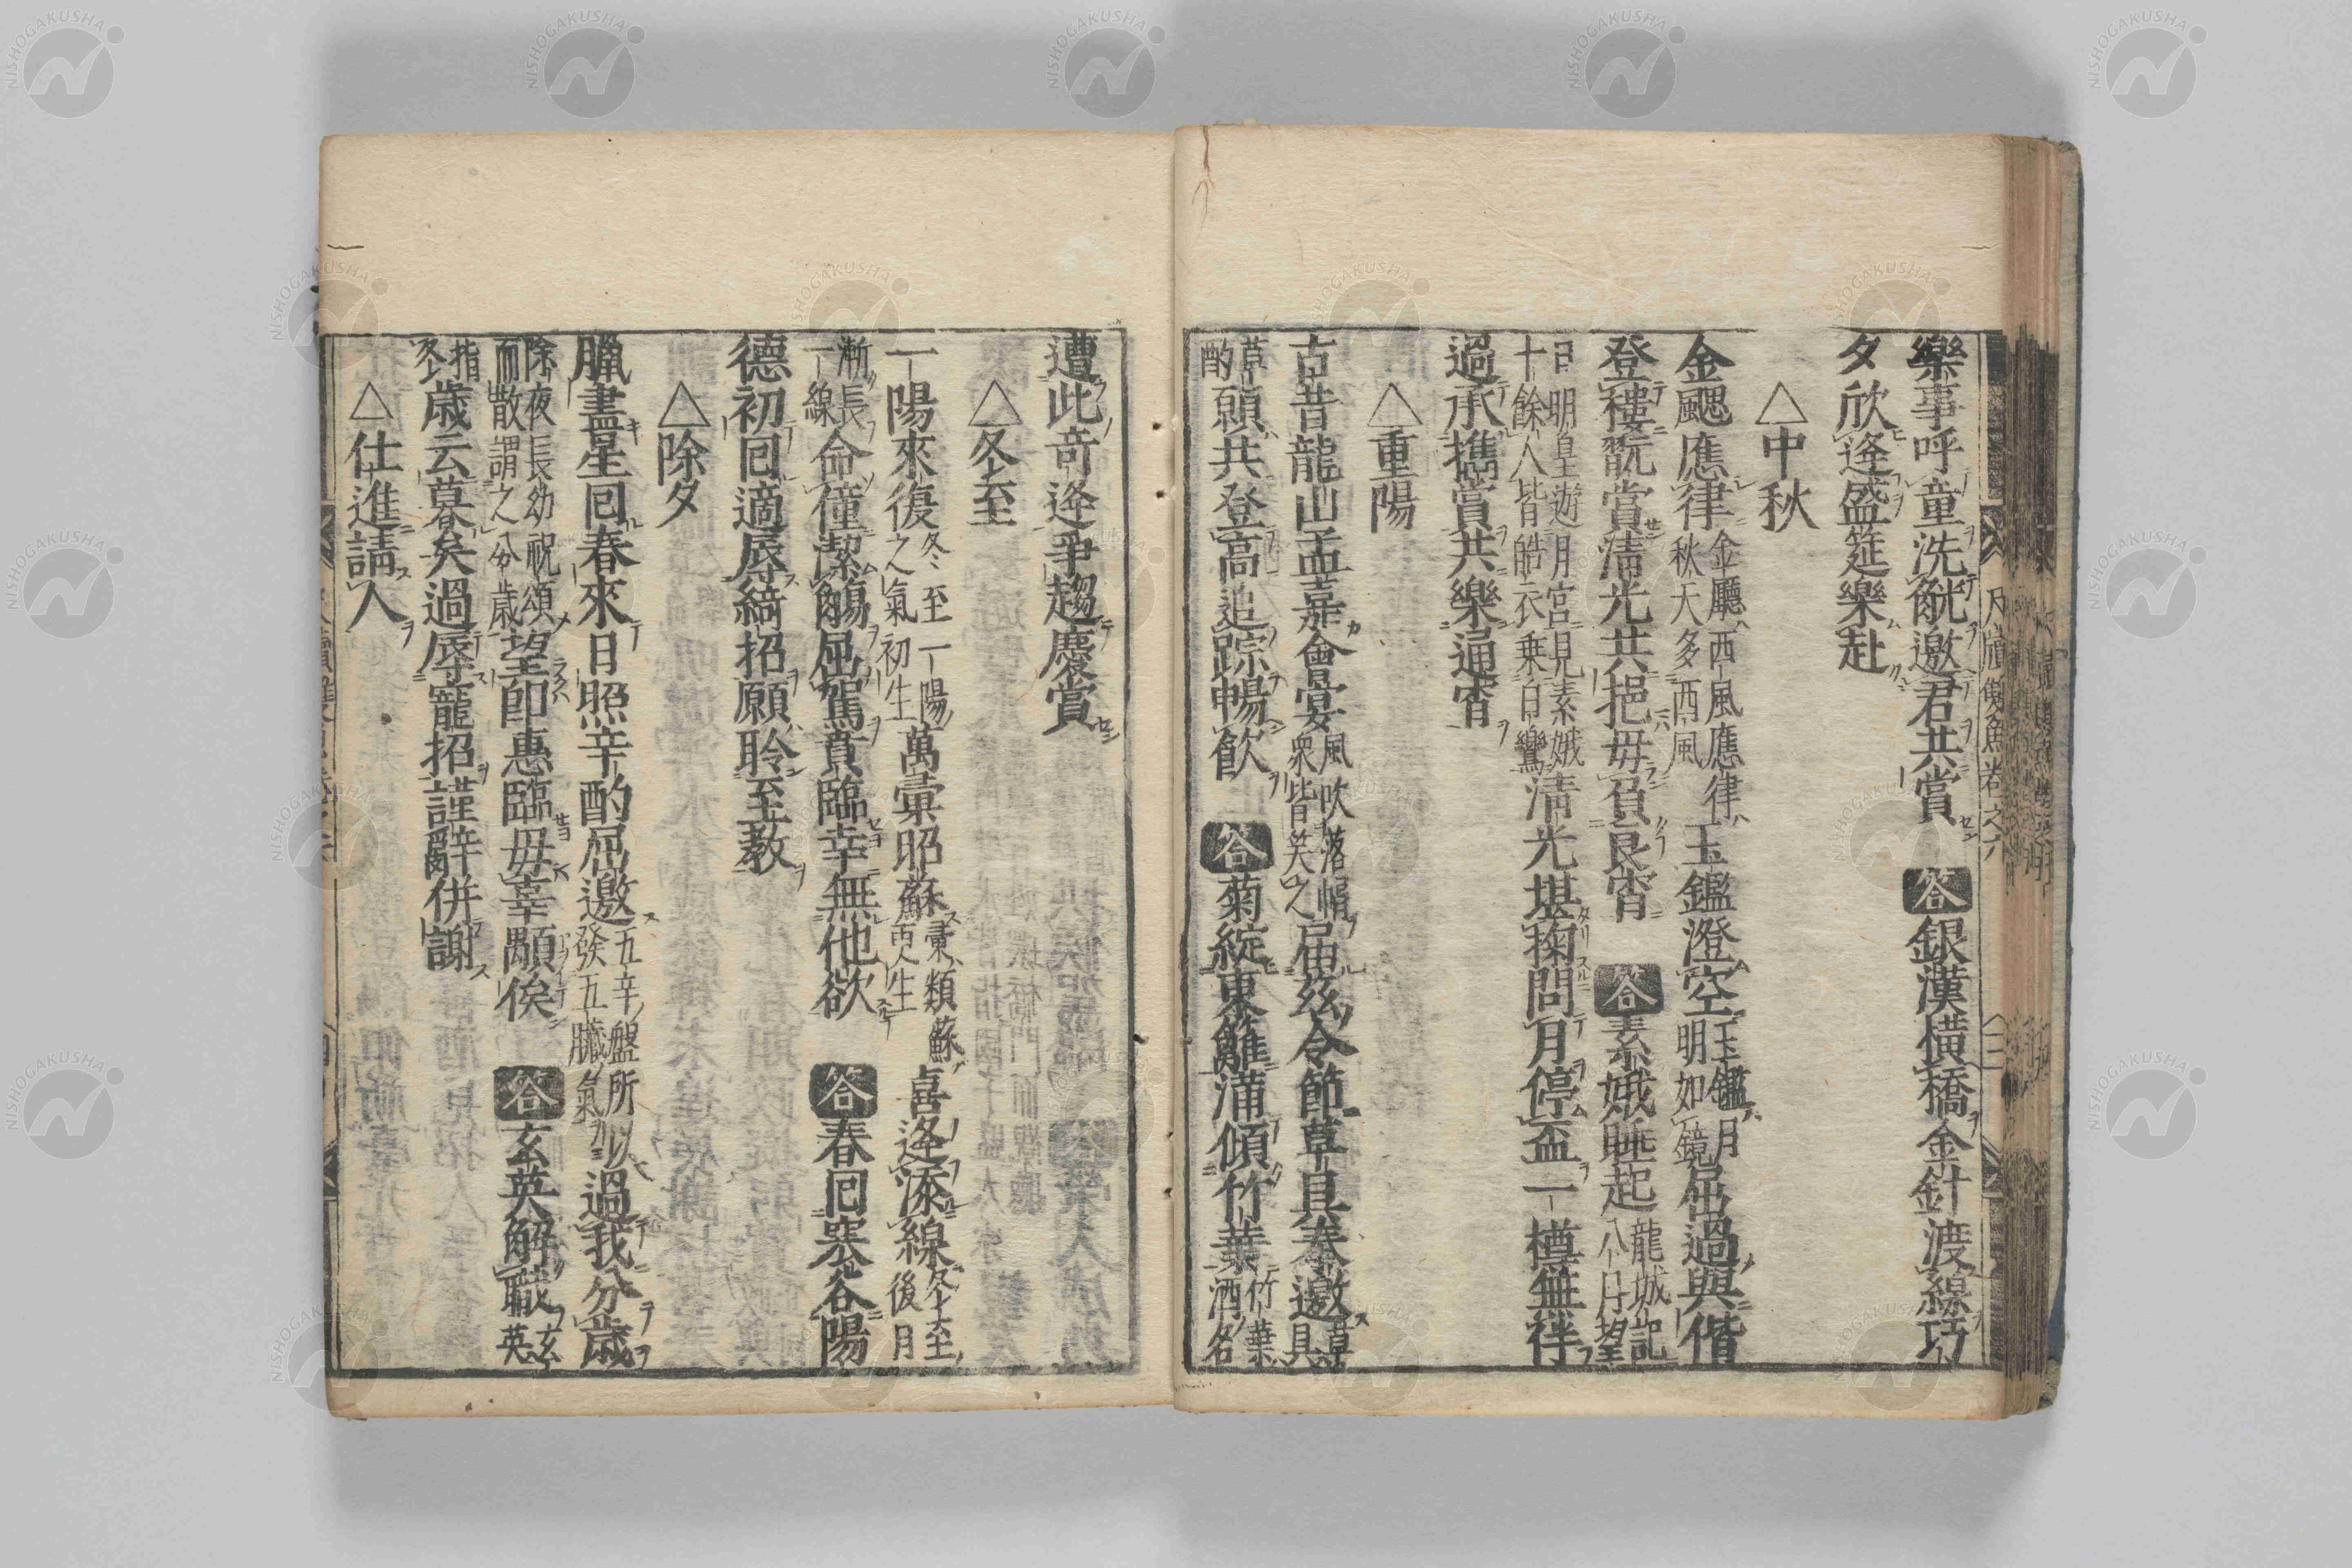 樂事呼童洗觥邀君共賞 答 銀漢橫橋金針渡線巧
夕欣逢盛筵樂赴
△中秋
金颸應律 金颸西風應律 秋天多西風 玉鑑澄空 玉鑑月 明如鏡 屈過與偕
登樓翫賞淸光共挹毋負良宵 答 素娥睡起 龍城記 八月望
日明皇遊月宮見素娥 十餘人皆皓衣乗白鸞 淸光堪掬問月停盃一樽無待
過承擕賞共樂通宵
△重陽
古昔龍山孟嘉會宴 風吹落帽 衆皆笑之 届玆令節草具奉邀 草具
草酌 願共登高追踪暢飮 答 菊綻東籬蒲傾竹葉 竹葉 酒名
遭此竒逄爭趨慶賞
△冬至
一陽來復 冬至一陽 之氣初生 萬彙昭蘇 彙類蘇 更生 喜逄添線 冬至 後月
漸長 一線 命僮潔觴屈駕賁臨幸無他欲 答 春回寒谷陽
德初回適辱綺招願聆至教
△除夕
臘盡星回春來日照辛酌屈邀 五辛盤所以 發五臟氣 過我分歲
除夜長幼祝頌 而散謂之分歲 望卽惠臨毋辜顒俟 答 玄英解職 玄英
指冬 歲云暮矣過辱寵招謹辭併謝
△仕進請人
尺牘雙魚卷之六